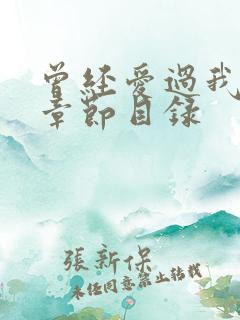 曾經愛過我
章節目錄
張新保
未经同意禁止转载